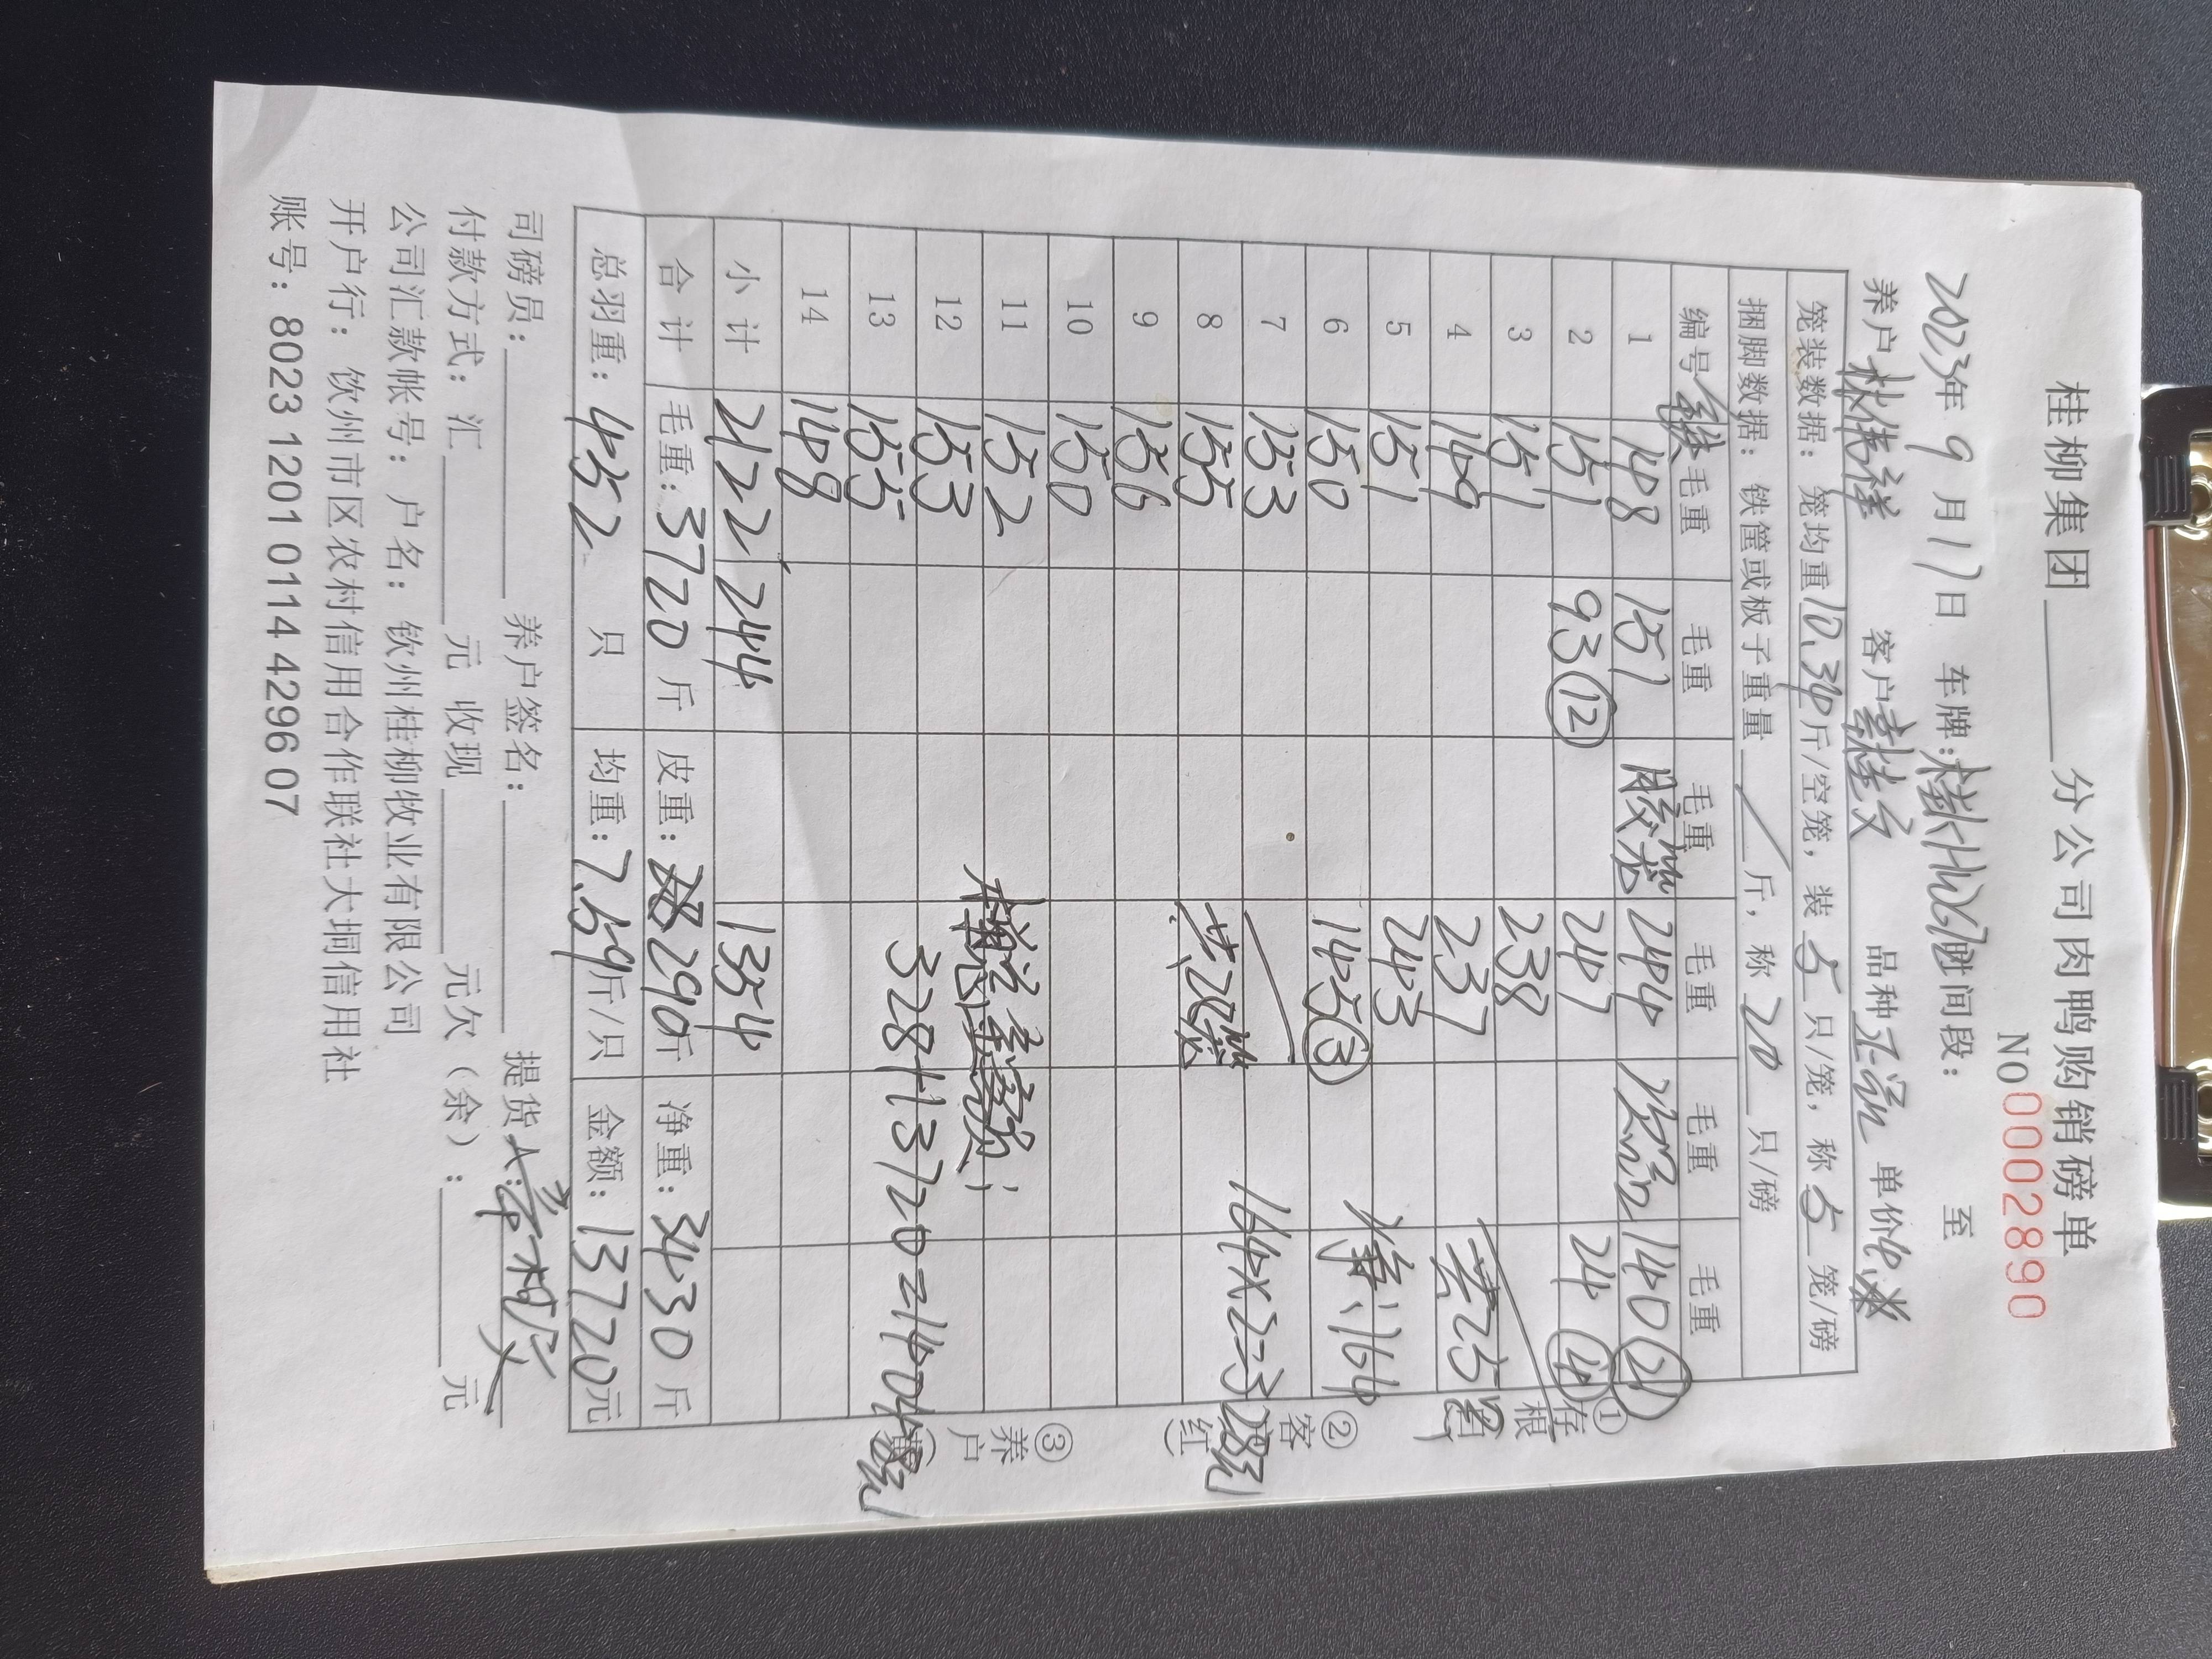 桂柳集团 分公司肉鸭购销磅单
NO 0002890
2023年 9 月 17 日 车牌: 时间段: 至
养户 林伟祥 客户 桂文 品种 单价 4
笼装数据: 笼均重 10.34 斤/空笼, 装 5 只/笼, 称 5 笼/磅
捆脚数据: 铁筐或板子重量 / 斤, 称 20 只/磅
编号 毛重 毛重 毛重 毛重 毛重 毛重
1 148 151 胶笼 244 140 21
2 151 93 12 241 24 4
3 151 238
4 149 237 共25
5 151 243
6 150 145 3 164
7 153
8 155 共28笼 164×2=328元
9 156
10 150
11 152
12 153
13 155 328+13720=14048元
14 148
小计 2122 244 1354
合计 毛重: 3720 斤 皮重: 290 斤 净重: 3430 斤
总羽重: 452 只 均重: 7.59 斤/只 金额: 13720 元
①存根
②客户(红)
③养户
司磅员: 养户签名: 提货人:
付款方式: 汇 元 收现 元欠(余): 元
公司汇款帐号: 户名: 钦州桂柳牧业有限公司
开户行: 钦州市区农村信用合作联社大垌信用社
账号: 8023 1201 0114 4296 07